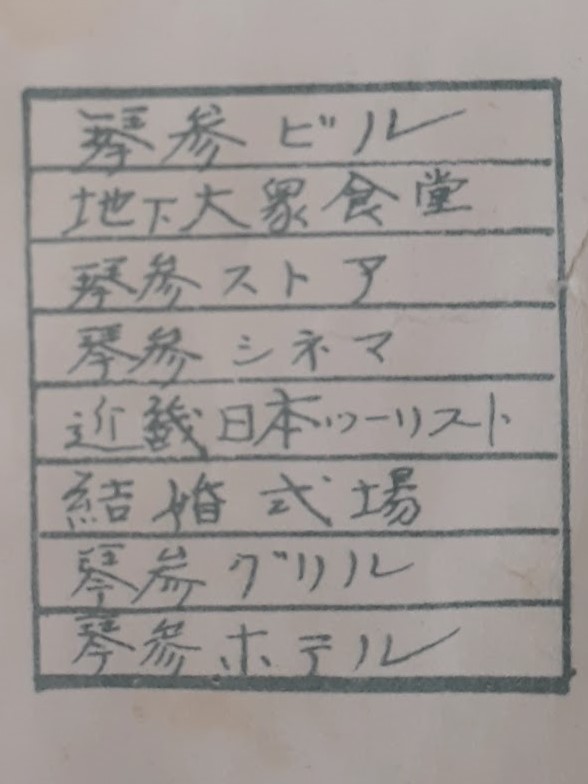 琴参ビル
地下大衆食堂
琴参ストア
琴参シネマ
近畿日本ツーリスト
結婚式場
琴参グリル
琴参ホテル